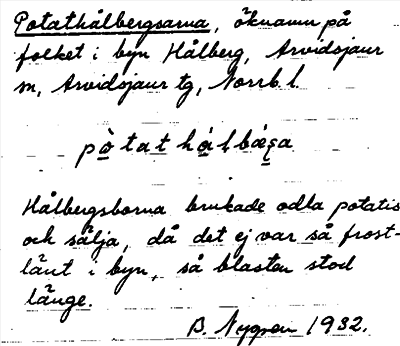 Potathålbergsarna, öknamn på
folket i byn Hålberg, Arvidsjaur
sn, Arvidsjaur tg, Norrb. l.
pòtathálbæ̀ga
Hålbergsborna brukade odla potatis
och sälja, då det ej var så frost-
länt i byn, så blasten stod
länge.
B. Nygren 1932.